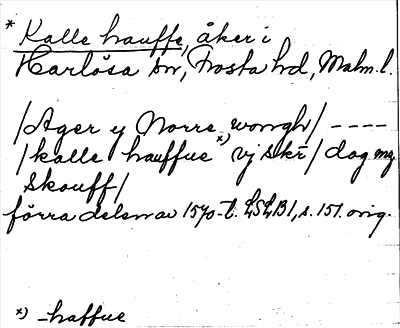 * Kalle hauffe, åker i
Harlösa sn, Frosta hd, Malm. l.
/Ager y Norre wongh/ ----
/kalle hauffue x) vj skr/ dog mz
Skouff/
förra delen av 1570-t. LSLB1, s. 151. orig.
x) -haffue